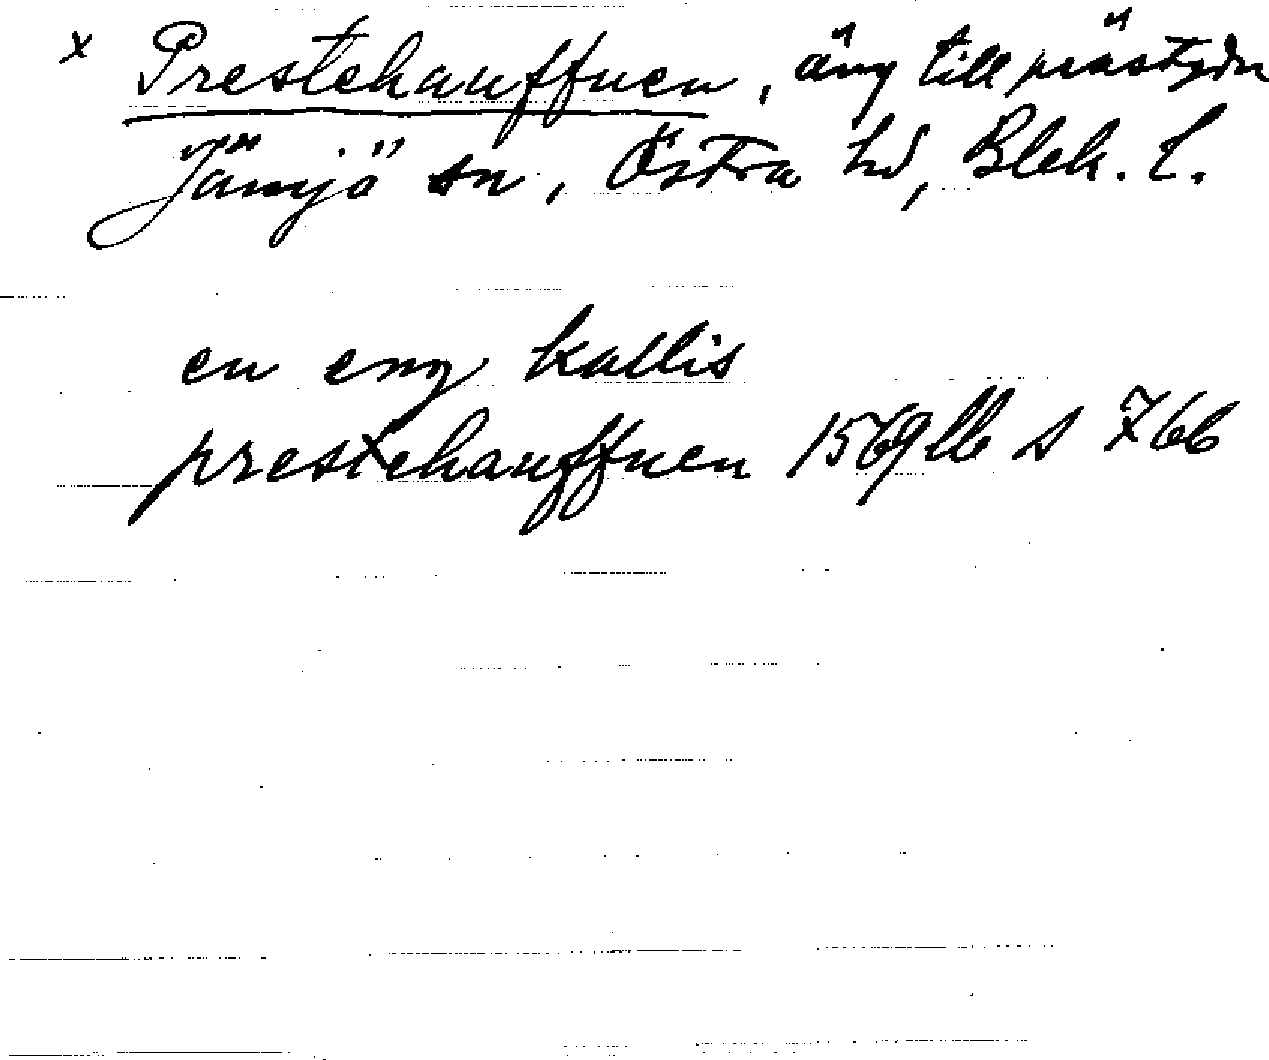 x Prestehauffuen, äng till prästgdn
Jämjö sn, Östra hd, Blek. l.
en eng kallis
prestehauffuen 1569 lb s 766